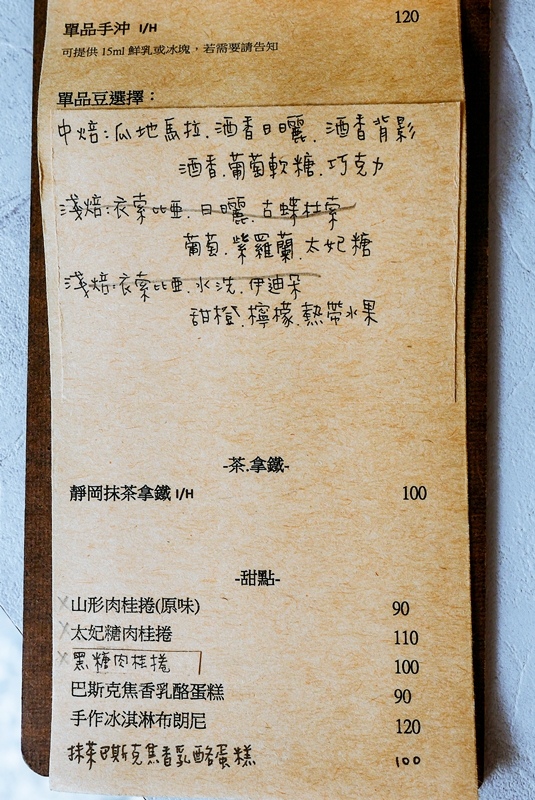 單品手沖 I/H 120
可提供 15ml 鮮乳或冰塊，若需要請告知
單品豆選擇：
中焙:瓜地馬拉.酒香日曬.酒香背影
酒香.葡萄軟糖.巧克力
淺焙:衣索比亞.日曬.古蝶杜索
葡萄.紫羅蘭.太妃糖
淺焙:衣索比亞.水洗.伊迪朵
甜橙.檸檬.熱帶水果
-茶.拿鐵-
靜岡抹茶拿鐵 I/H 100
-甜點-
x山形肉桂捲(原味) 90
x太妃糖肉桂捲 110
x黑糖肉桂捲 100
巴斯克焦香乳酪蛋糕 90
手作冰淇淋布朗尼 120
抹茶巴斯克焦香乳酪蛋糕 100